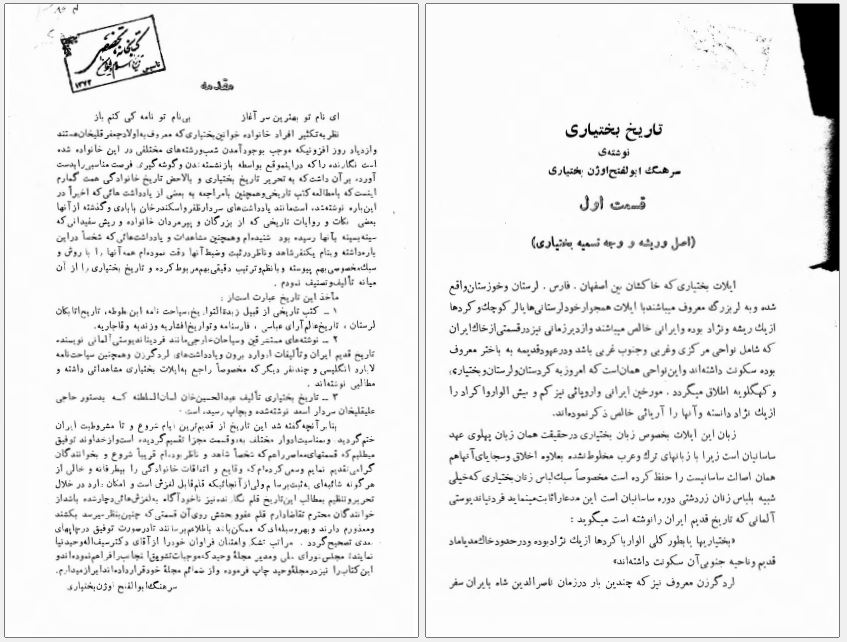 تاریخ بختیاری
نوشته‌ی
سرهنگ ابوالفتح اوژن بختیاری
قسمت اول
(اصل و ریشه و وجه تسمیه بختیاری)
ایلات بختیاری که خاکشان بین اصفهان . فارس . لرستان و خوزستان واقع
شده و به لر بزرگ معروف میباشند با ایلات همجوار خود لرستانی‌ها یا لر کوچک و کردها
از یک ریشه و نژاد بوده و ایرانی خالص میباشند و از دیر زمانی نیز در قسمتی از خاک ایران
که شامل نواحی مرکزی و غربی و جنوب غربی باشد و در عهد قدیمه به باختر معروف
بوده سکونت داشته‌اند و این نواحی همان است که امروز به کردستان و لرستان و بختیاری،
و کهگلویه اطلاق میگردد . مورخین ایرانی و اروپائی نیز کم و بیش الوار و اکراد را
از یک نژاد دانسته و آنها را آریائی خالص ذکر نموده‌اند.
زبان این ایلات بخصوص زبان بختیاری در حقیقت همان زبان پهلوی عهد
ساسانیان است زیرا با زبانهای ترک و عرب مخلوط نشده بعلاوه اخلاق و سجایای آنها هم
همان اصالت ساسانیست را حفظ کرده است مخصوصاً سبک لباس زنان بختیاری که خیلی
شبیه بلباس زنان زردشتی دوره ساسانیان است این مدعا را ثابت مینماید فردنیاند یوستی
آلمانی که تاریخ قدیم ایران را نوشته است میگوید :
«بختیاریها یا بطور کلی الوار با کردها از یک نژاد بوده و در حدود خاک مدیا ماد
قدیم و ناحیه جنوبی آن سکونت داشته‌اند»
لرد گرزن معروف نیز که چندین بار در زمان ناصرالدین شاه بایران سفر
مقدمه
ای نام تو بهترین سر آغاز بی‌نام تو نامه کی کنم باز
نظر به تکثیر افراد خانواده خوانین بختیاری که معروف به اولاد جعفرقلیخان هستند
و ازدیاد روز افزونیکه موجب بوجود آمدن شعب و رشته‌های مختلفی در این خانواده شده
است نگارنده را که در اینموقع بواسطه بازنشسته شدن و گوشه‌گیری فرصت مناسبی را بدست
آورده بر آن داشت که به تحریر تاریخ بختیاری و بالاخص تاریخ خانوادگی همت گمارم
اینست که با مطالعه کتب تاریخی و همچنین با مراجعه به بعضی از یادداشت هائی که اخیراً در
این باره نوشته شده است مانند یادداشت‌های سردار ظفر و اسکندر خان بابادی و گذشته از آنها
بعضی نکات و روایات تاریخی که از بزرگان و پیرمردان خانواده و ریش سفیدانی که
سینه بسینه بآنها رسیده بود شنیده‌ام و همچنین مشاهدات و یادداشت‌هائی که شخصاً در این
باره داشته و بنام یکنفر شاهد و ناظر در ثبت و ضبط آنها دقت نموده‌ام همه آنها را با روش و
سبک مخصوصی بهم پیوسته و با نظم و ترتیب دقیقی بهم مربوط کرده و تاریخ بختیاری را از آن
میانه تألیف و تصنیف نمودم .
مآخذ این تاریخ عبارت است از :
۱ ـ کتب تاریخی از قبیل زبدة‌التواریخ، سیاحت نامه ابن بطوطه، تاریخ اتابکان
لرستان ، تاریخ عالم آرای عباسی ، فارسنامه و تواریخ افشاریه و زندیه و قاجاریه.
۲ ـ نوشته‌های مستشرقین و سیاحان خارجی مانند فردیناند یوستی آلمانی نویسنده
تاریخ قدیم ایران و تألیفات ادوارد برون و یادداشت‌های لرد گرزن و همچنین سیاحت‌نامه
لایارد انگلیسی و چند نفر دیگر که مخصوصاً راجع به ایلات بختیاری مشاهداتی داشته و
مطالبی نوشته‌اند .
۳ ـ تاریخ بختیاری تألیف عبدالحسین‌خان لسان‌السلطنه که بدستور حاجی
علیقلیخان سردار اسعد نوشته شده و بچاپ رسیده است .
بنا بر آنچه گفته شد این تاریخ از قدیم‌ترین ایام شروع و تا مشروطیت ایران
ختم گردید و بمناسبت ادوار مختلف به دو قسمت مجزا تقسیم گردیده است و از خداوند توفیق
میطلبم که قسمتهای معاصر را هم که شخصاً شاهد و ناظر بوده‌ام قریباً شروع و بخوانندگان
گرامی تقدیم نمایم و سعی کرده‌ام که وقایع و اتفاقات خانوادگی را بیطرفانه و خالی از
هر گونه شائبه‌ای به ثبت برسانم ولی از آنجائیکه قلم قابل لغزش است و امکان دارد در خلال
تحریر و تنظیم بمطالب این تاریخ قلم نگارنده نیز ناخودآگاه به لغزش‌هائی دچار شده باشد از
خوانندگان محترم تقاضا دارم قلم عفو و بخشش روی آن قسمتی که چنین بنظر میرسد بکشند
و معذورم دارند و بهر وسیله‌ای که ممکن باشد باطلاعم برسانند تا در صورت توفیق در چاپهای
بعدی تصحیح گردد . مراتب تشکر و امتنان فراوان خود را از آقای دکتر سیف‌اله وحیدنیا
نماینده مجلس شورای ملی و مدیر مجله وحید که موجبات تشویق اینجانب را فراهم نموده‌اند و
این کتاب را نیز در مجله وحید چاپ فرموده و از ضمائم مجلهٔ خود قرار داده‌اند ابراز میدارم.
سرهنگ ابوالفتح اوژن بختیاری